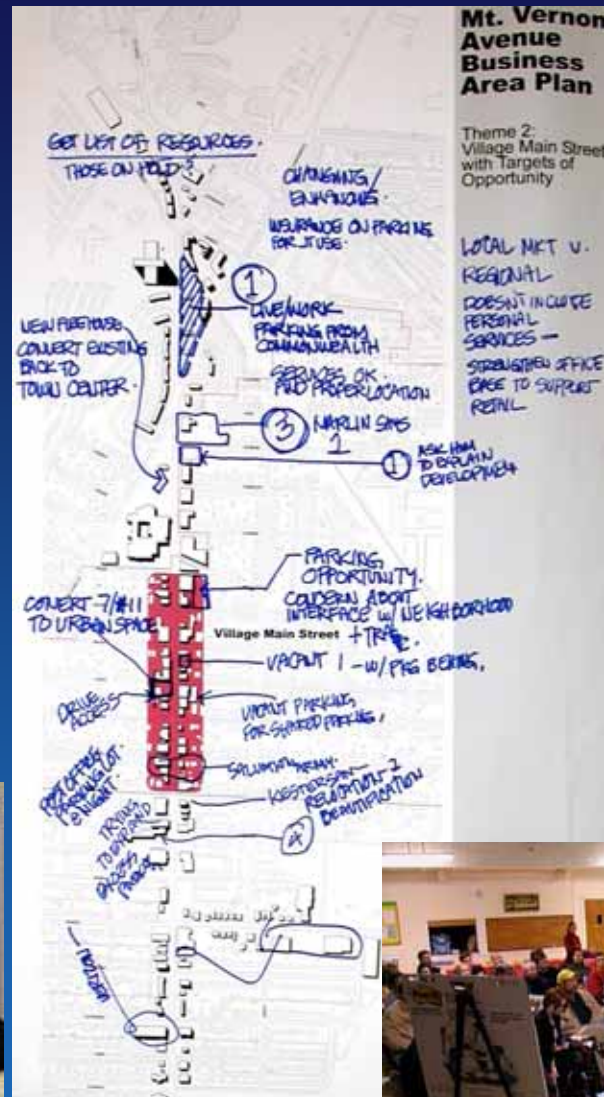 Mt. Vernon
Avenue
Business
Area Plan
Theme 2:
Village Main Street
with Targets of
Opportunity
GET LIST OF RESOURCES.
THOSE ON HOLD?
CHANGING/
ENHANCING.
INSURANCE ON PARKING
FOR USE.
LOCAL MKT V.
REGIONAL
DOESN'T INCLUDE
PERSONAL
SERVICES —
STRENGTHEN OFFICE
BASE TO SUPPORT
RETAIL
1
LIVE/WORK
PARKING FROM
COMMONWEALTH
SERVICES OK.
AND PROPER LOCATION
NEW FIREHOUSE
CONVERT EXISTING
BACK TO
TOWN CENTER.
3
1
1
ASK HIM
TO EXPLAIN
DEVELOPMENT
PARKING
OPPORTUNITY.
CONCERN ABOUT
INTERFACE W/ NEIGHBORHOOD
CONVERT 7/#11
TO URBAN SPACE
Village Main Street
VACANT 1 - W/ PKG BEHIND.
DRIVE
ACCESS
VACANT PARKING
FOR SHARED PARKING.
SALVATION ARMY.
POST OFFICE
PARKING LOT.
@ NIGHT.
RELOCATION - 2
BEAUTIFICATION
TRYING
TO EXPAND
EXCESS
4